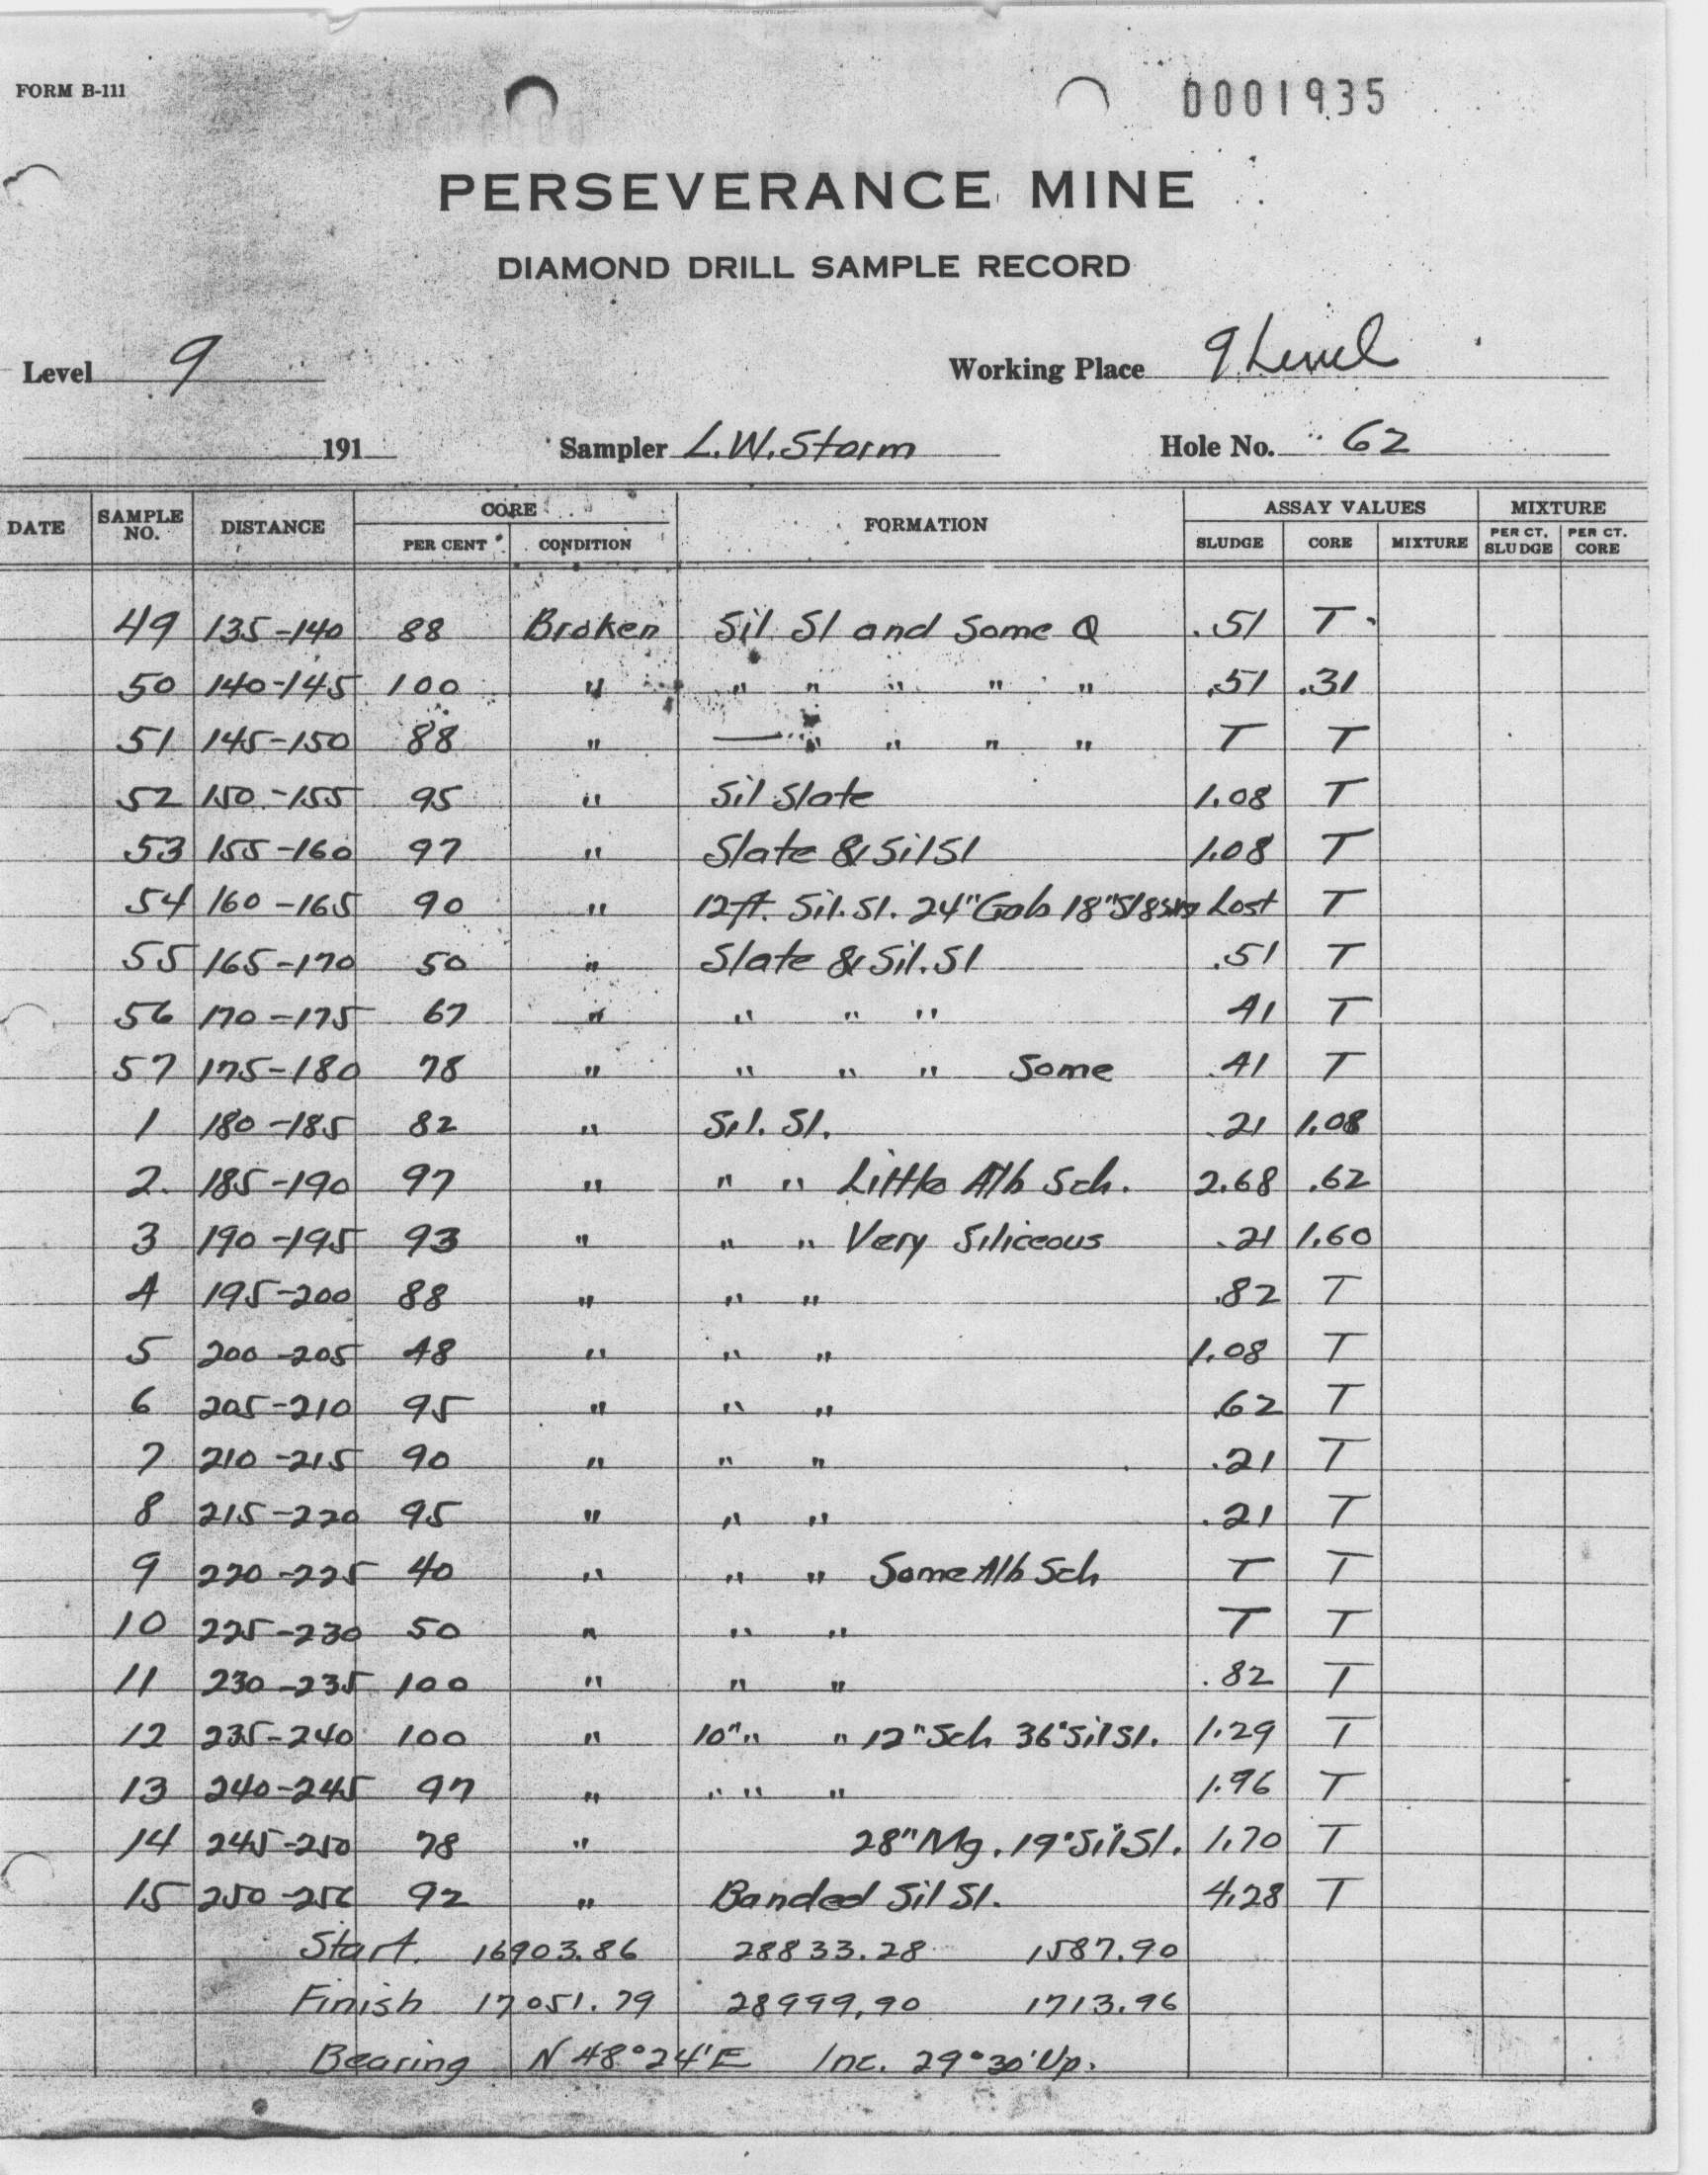 FORM B-111
0001935
PERSEVERANCE MINE
DIAMOND DRILL SAMPLE RECORD
Level 9 Working Place 9 Level
191 Sampler L.W. Storm Hole No. 62
DATE SAMPLE NO. DISTANCE CORE PER CENT CONDITION FORMATION ASSAY VALUES SLUDGE CORE MIXTURE MIXTURE PER CT. SLUDGE PER CT. CORE
49 135-140 88 Broken Sil Sl and Some Q .51 T
50 140-145 100 " " " " " " .51 .31
51 145-150 88 " — " " " " T T
52 150-155 95 " Sil Slate 1.08 T
53 155-160 97 " Slate & Sil Sl 1.08 T
54 160-165 90 " 12ft. Sil. Sl. 24" Gab 18" Lost T
55 165-170 50 " Slate & Sil. Sl .51 T
56 170-175 67 " " " " 41 T
57 175-180 78 " " " " Some .41 T
1 180-185 82 " Sil. Sl. .21 1.08
2. 185-190 97 " " " Little Alb Sch. 2.68 .62
3 190-195 93 " " " Very Siliceous .21 1.60
4 195-200 88 " " " .82 T
5 200-205 48 " " " 1.08 T
6 205-210 95 " " " .62 T
7 210-215 90 " " " .21 T
8 215-220 95 " " " .21 T
9 220-225 40 " " " Some Alb Sch T T
10 225-230 50 " " " T T
11 230-235 100 " " " .82 T
12 235-240 100 " 10" " " 12" Sch 36" Sil Sl. 1.29 T
13 240-245 97 " " " " 1.96 T
14 245-250 78 " 28" Mg. 19" Sil Sl. 1.70 T
15 250-256 92 " Banded Sil Sl. 4.28 T
Start. 16903.86 28833.28 1587.90
Finish 17051.79 28999.90 1713.96
Bearing N 48°24'E Inc. 29°30' Up.